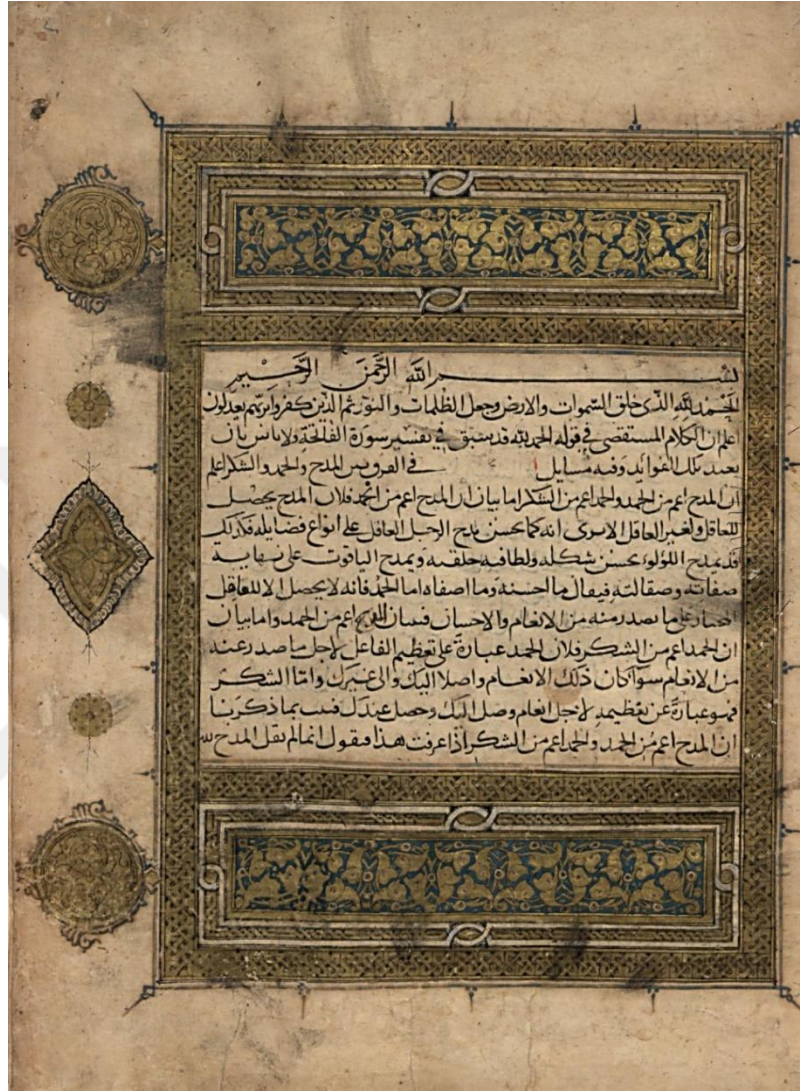 بسم الله الرحمن الرحيم
الحمد لله الذى خلق السموات والارض وجعل الظلمات والنور ثم الذين كفروا بربهم يعدلون
اعلم ان الكلام المستقصى في قوله الحمد لله قد سبق في تفسير سورة الفاتحة ولا باس بان
نعيد تلك الفوايد وفيه مسايل في الفرق بين المدح والحمد والشكر اعلم
ان المدح اعم من الحمد والحمد اعم من الشكر اما بيان ان المدح اعم من الحمد فلان المدح يحصل
للعاقل ولغير العاقل الا ترى انه كما يحسن مدح الرجل العاقل على انواع فضايله فكذلك
قد يمدح اللؤلؤ بحسن شكله ولطافة خلقته ويمدح الياقوت على نهاية
صفائه وصقالته فيقال ما احسنه وما اصفاه اما الحمد فانه لا يحصل الا للفاعل
المختار على ما يصدر منه من الانعام والاحسان فبان المدح اعم من الحمد واما بيان
ان الحمد اعم من الشكر فلان الحمد عبارة على تعظيم الفاعل لاجل ما صدر عنه
من الانعام سوا كان ذلك الانعام واصلا اليك والى غيرك واما الشكر
فهو عبارة عن تعظيمه لاجل انعام وصل اليك وحصل عندك فثبت بما ذكرنا
ان المدح اعم من الحمد والحمد اعم من الشكر اذا عرفت هذا فنقول انما لم يقل المدح